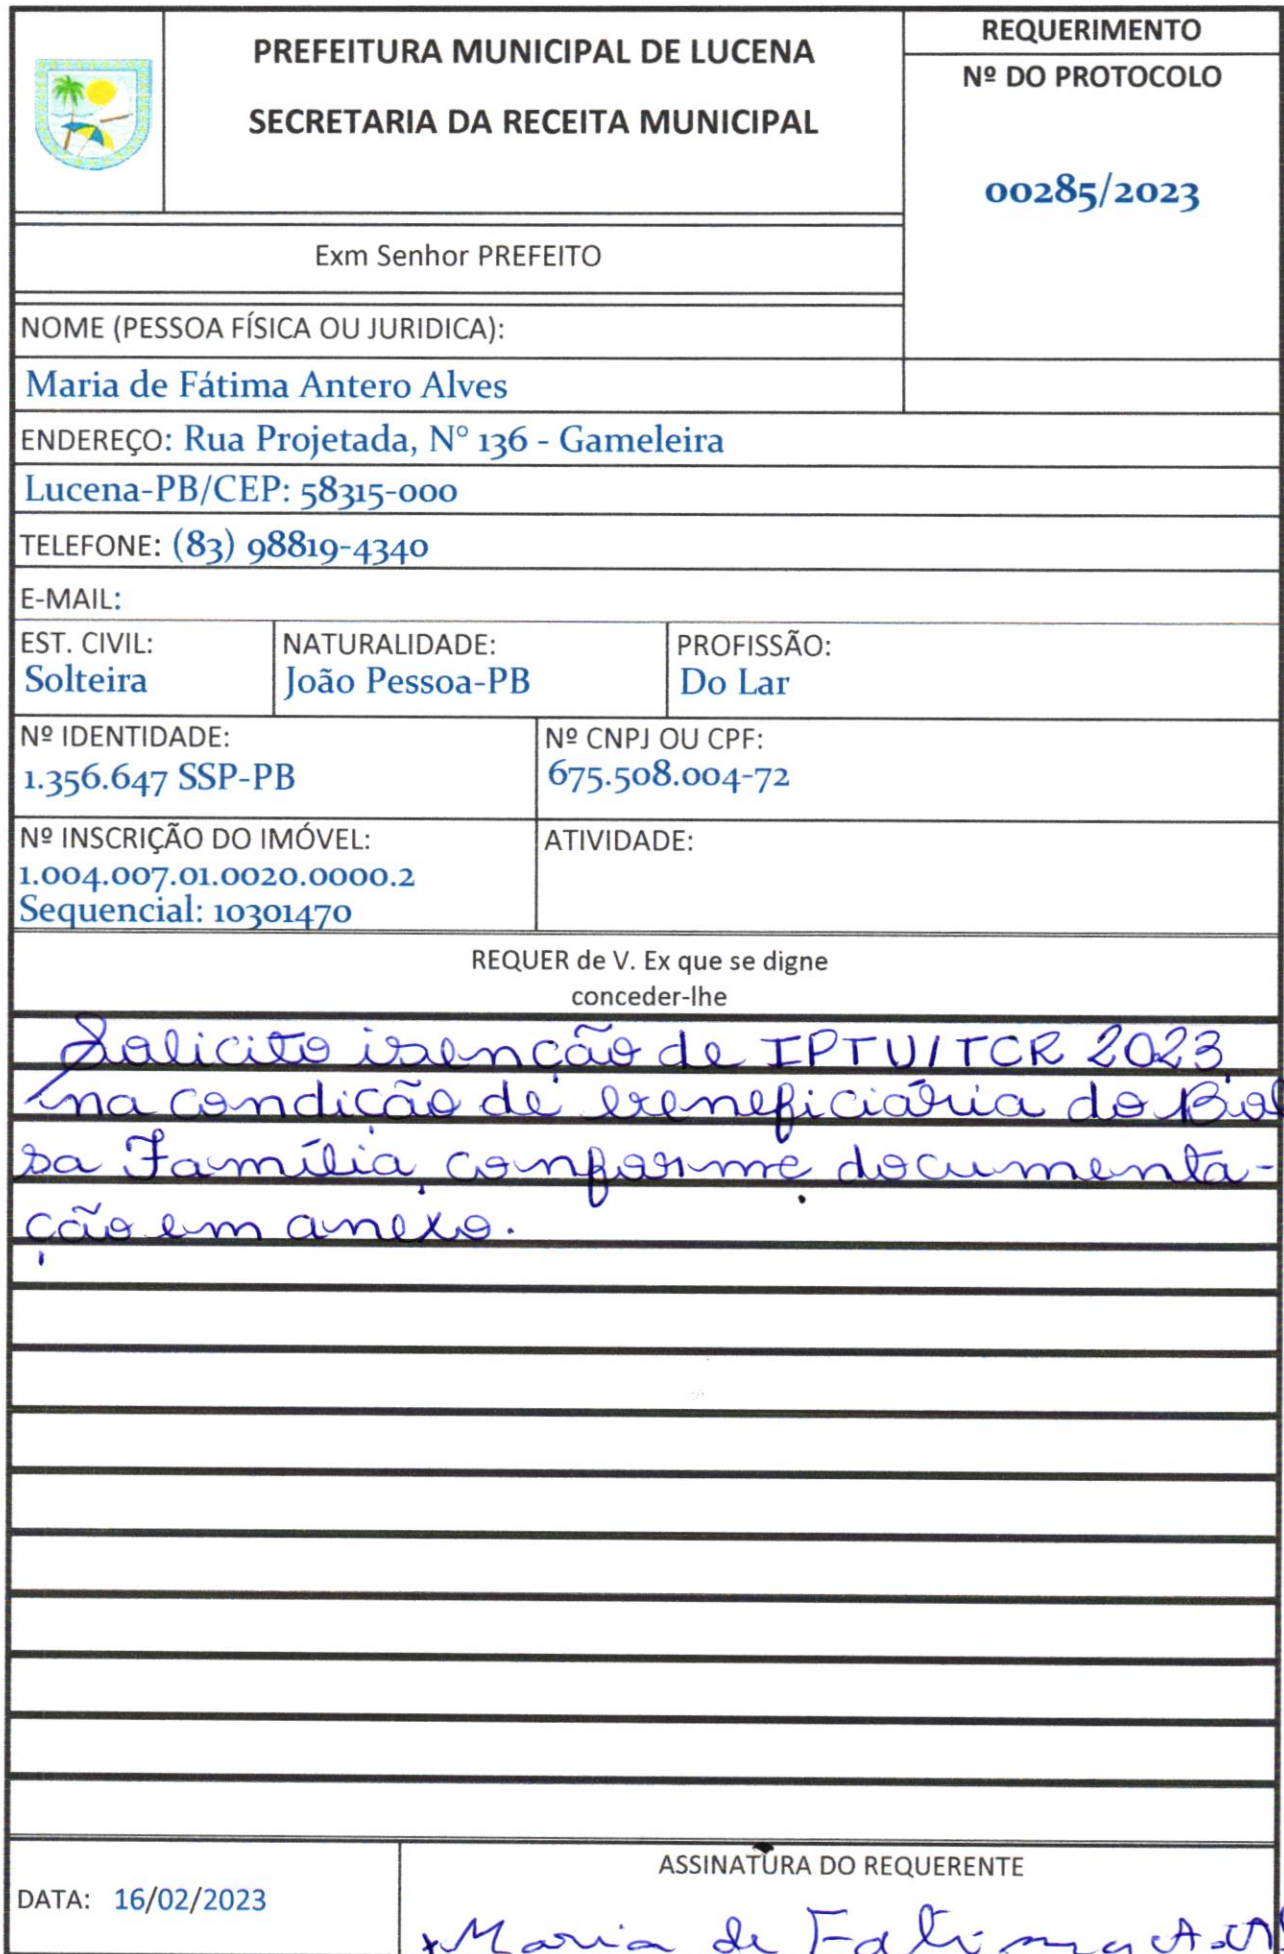 PREFEITURA MUNICIPAL DE LUCENA
SECRETARIA DA RECEITA MUNICIPAL
REQUERIMENTO
Nº DO PROTOCOLO
00285/2023
Exm Senhor PREFEITO
NOME (PESSOA FÍSICA OU JURIDICA):
Maria de Fátima Antero Alves
ENDEREÇO: Rua Projetada, N° 136 - Gameleira
Lucena-PB/CEP: 58315-000
TELEFONE: (83) 98819-4340
E-MAIL:
EST. CIVIL:
Solteira
NATURALIDADE:
João Pessoa-PB
PROFISSÃO:
Do Lar
Nº IDENTIDADE:
1.356.647 SSP-PB
Nº CNPJ OU CPF:
675.508.004-72
Nº INSCRIÇÃO DO IMÓVEL:
1.004.007.01.0020.0000.2
Sequencial: 10301470
ATIVIDADE:
REQUER de V. Ex que se digne
conceder-lhe
Solicito isenção de IPTU/TCR 2023,
na condição de beneficiária do Bol
sa Família, conforme documenta-
ção em anexo.
DATA: 16/02/2023
ASSINATURA DO REQUERENTE
x Maria de Fatima